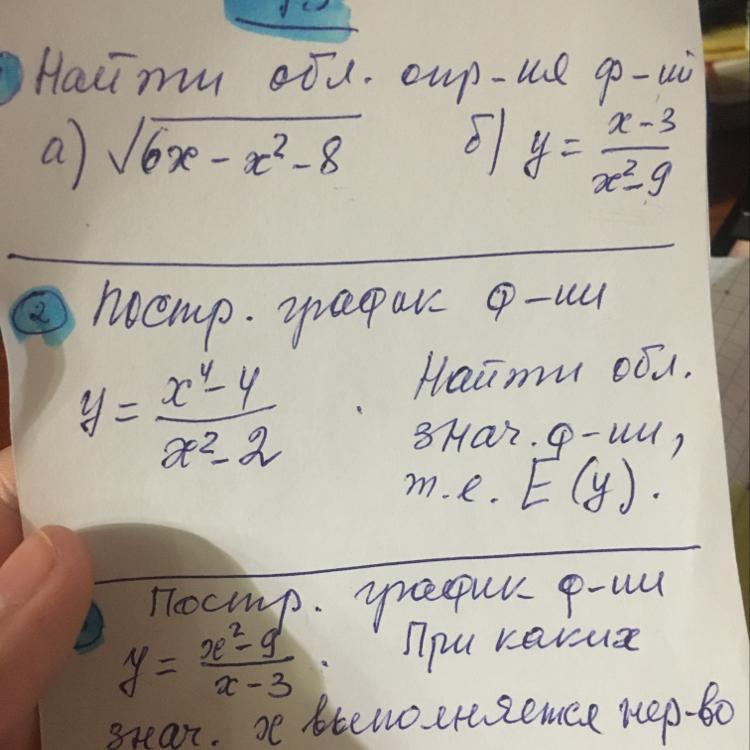 Найти обл. опр-ия ф-ий
а) √6x - x² - 8   б) y = (x - 3)/(x² - 9)
2 Постр. график ф-ии
y = (x⁴ - 4)/(x² - 2) . Найти обл.
знач. ф-ии,
т.е. E(y).
Постр. график ф-ии
y = (x² - 9)/(x - 3) . При каких
знач. x выполняется нер-во